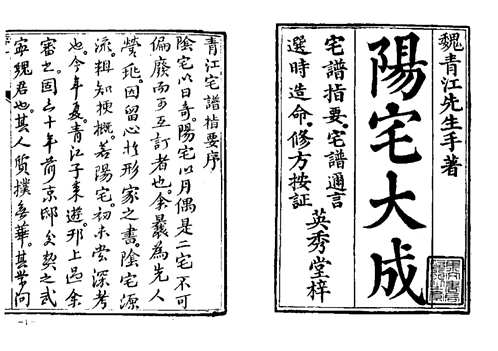 魏青江先生手著
陽宅大成
宅譜指要、宅譜邇言
選時造命、修方按証
英秀堂梓
青江宅譜指要序
陰宅以日奇。陽宅以月偶是二宅不可
偏廢而可互訂者也。余曩為先人
塋兆。因留心於形家之書。陰宅源
流。粗知梗概。若陽宅。初未嘗深考
也。今年夏。青江子來遊。邗上
審之。固三十年前京邸久契之武
寧魏君也。其人質撲無華。其学問
—1—